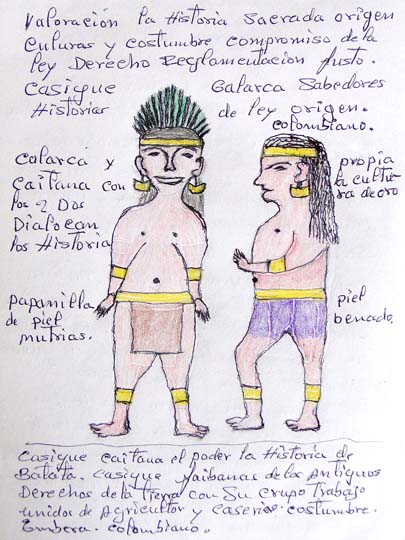 Valoración la Historia Sacrada origen
Culuras y costumbre compromiso de la
ley Derecho Reglamentacion Justo.
Casique Calarca Sabedores
Historias de ley origen.
colombiano.
Calarca y
Caitana con
los 2 Dos
Dialocan
los Historia
propia
la cultu
ra de oro
papanilla
de piel
nutrias.
piel
benado.
Casique Caitana el poder la Historia de
Casique yaibanas de los Antiguos
Derechos de la tierra con Su Crupo trabajo
unidos de Agricultor y Caseria. costumbre.
Embera. colombiano.